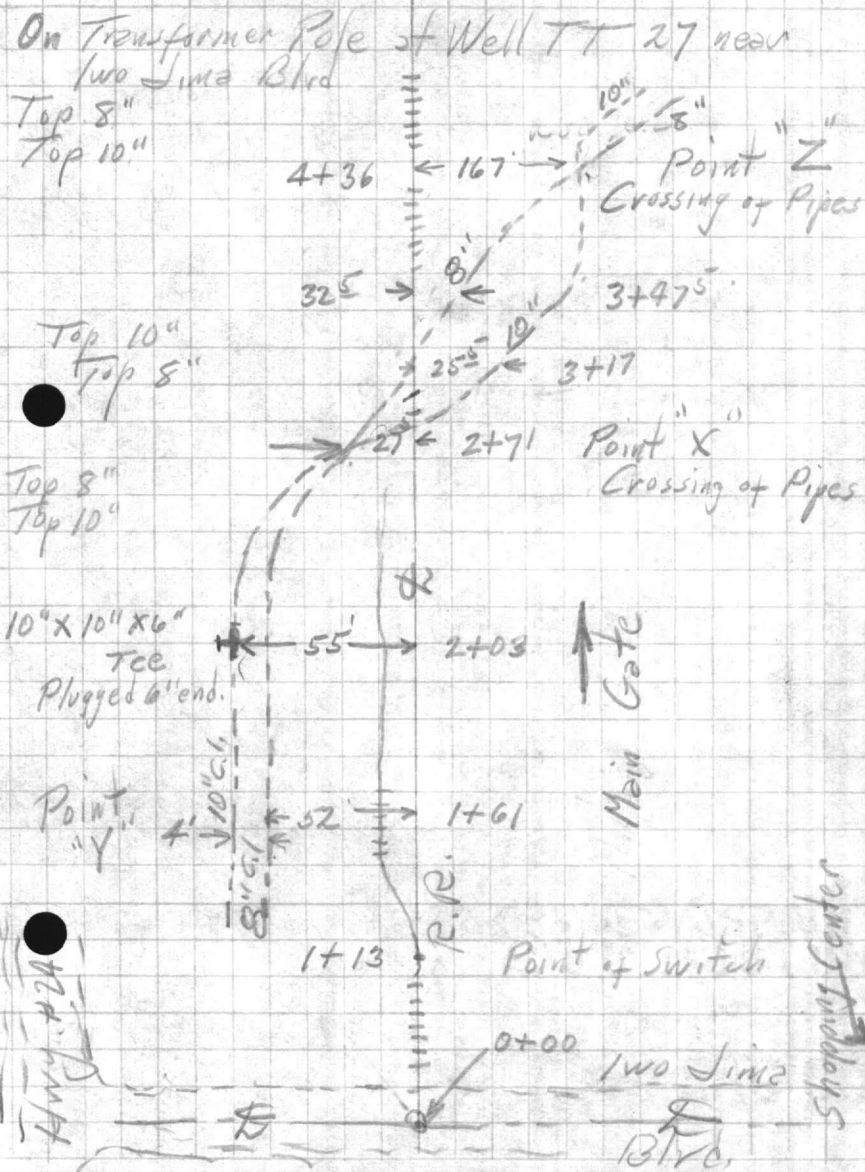 On Transformer Pole at Well TT 27 near
Iwo Jima Blvd
Top 8"
Top 10"
10"
8"
4+36
167'
Point "Z"
Crossing of Pipes
8"
32⁵
3+47⁵
Top 10"
Top 8"
10"
25⁵
3+17
27'
2+71
Point "X"
Crossing of Pipes
Top 8"
Top 10"
10" X 10" X 6"
Tee
Plugged 6" end.
55'
2+03
Main Gate
Point
"Y"
4'
10" C.I.
8" C.I.
52'
1+61
R.R.
1+13
Point of Switch
Hwy. #24
0+00
Iwo Jima
Blvd.
Supply Center